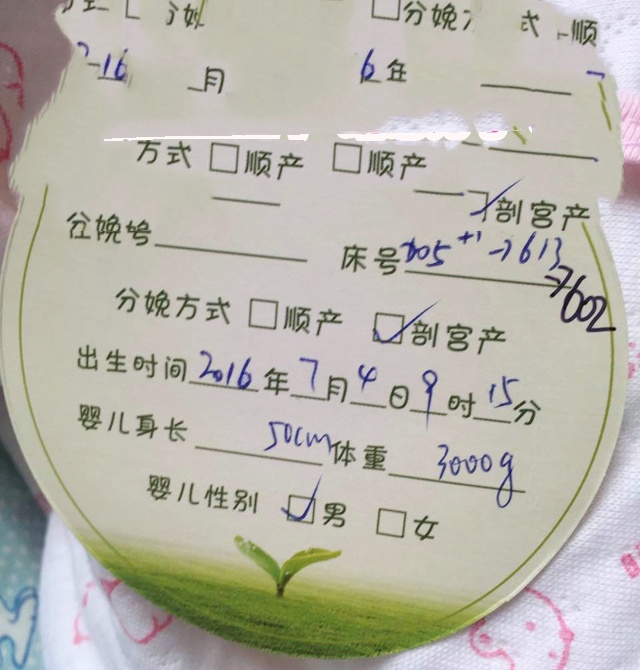 分娩 式 顺
-16 月 6年
方式 □顺产 □顺产
剖宫产
分娩号 床号705+1→613
→602
分娩方式 □顺产 ☑剖宫产
出生时间2016年7月4日9时15分
婴儿身长 50cm体重 3000g
婴儿性别 ☑男 □女